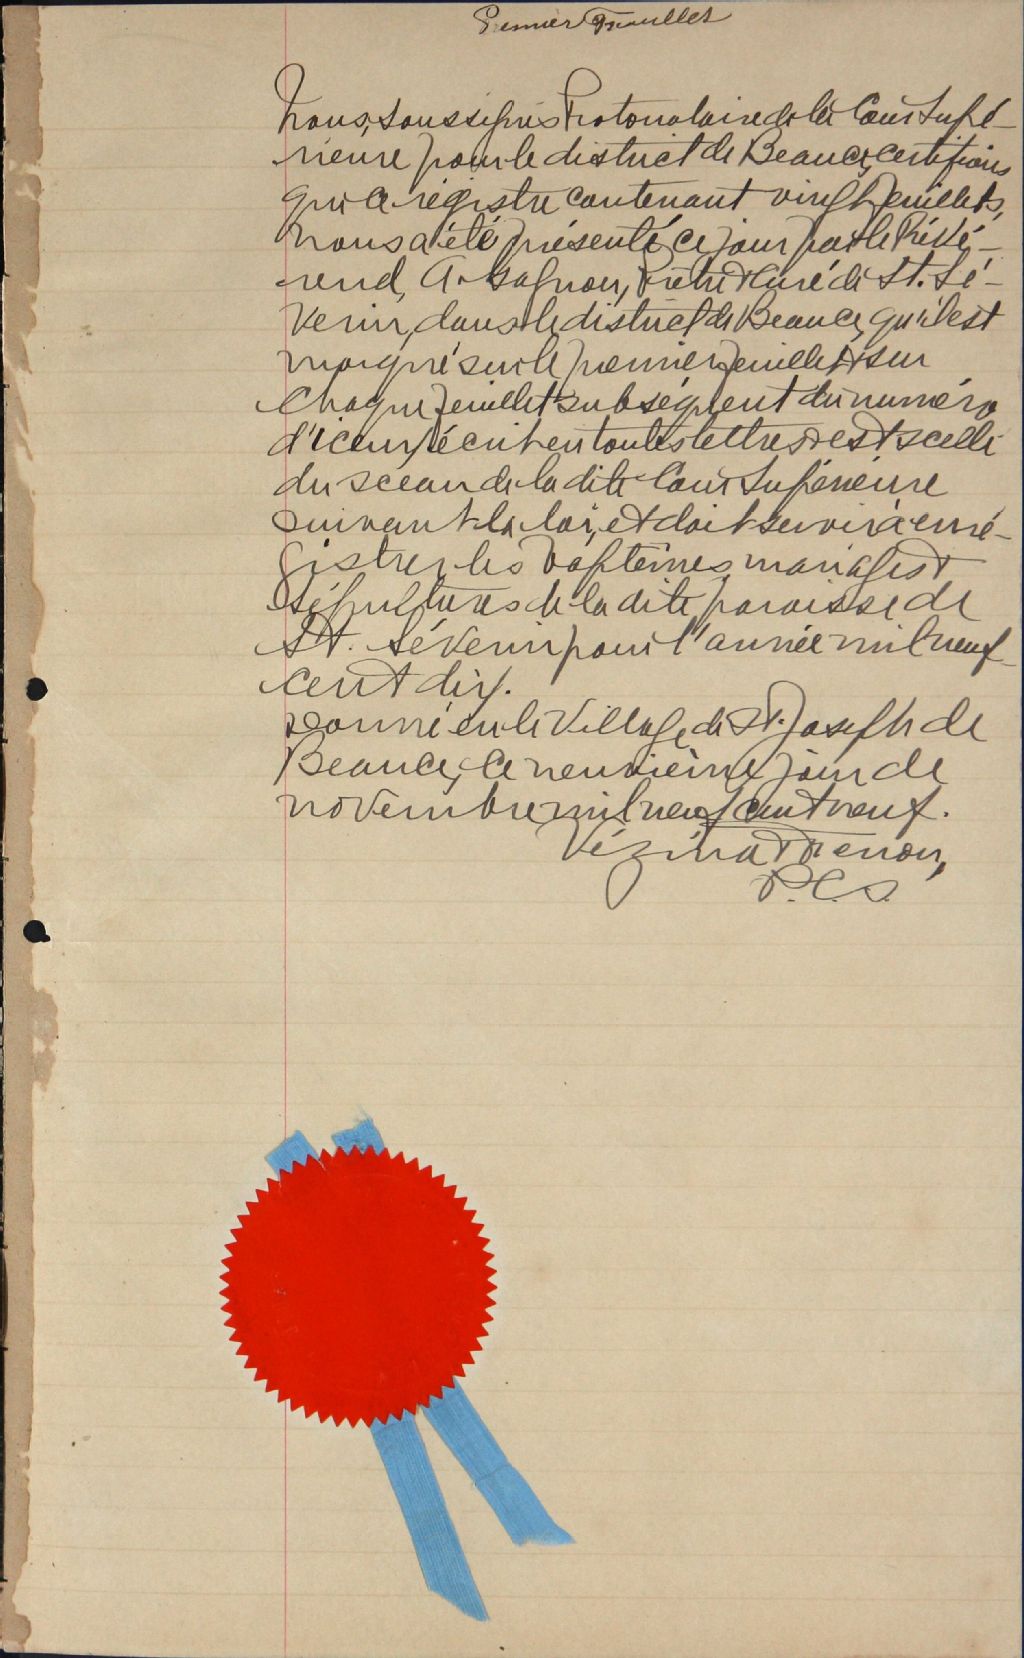 Premier Feuillet
Nous, soussignés Protonotaire de la Cour Supé-
rieure pour le district de Beauce, certifions
que ce régistre contenant vingt feuillets,
nous a été présenté, ce jour par le Révé-
rend, A. Gagnon, Prêtre & Curé de St. Sé-
verin, dans le district de Beauce, qu'il est
marqué sur le premier feuillet & sur
chaque feuillet subséquent du numéro
d'iceux, écrit en toutes lettres & est scellé
du sceau de la dite Cour Supérieure
suivant la loi, et doit servir à enré-
gistrer les baptêmes, mariages &
sépultures de la dite paroisse de
St. Séverin pour l'année mil neuf
cent dix.
Donné en le village de St. Joseph de
Beauce, ce neuvième jour de
novembre mil neuf cent neuf.
Vézina &
P.C.S.